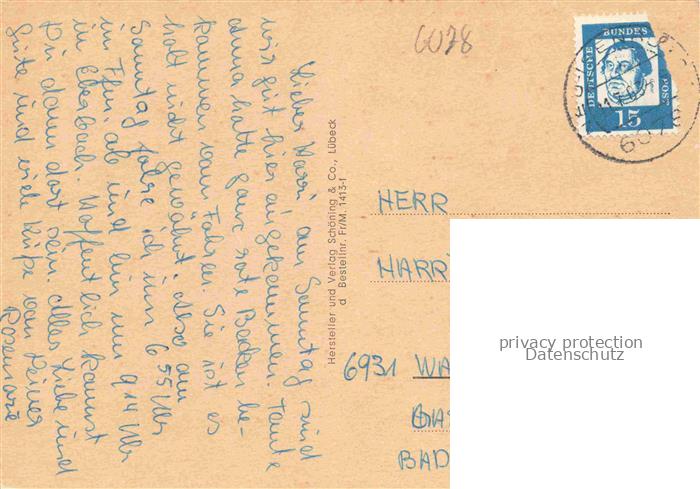 Lieber Harri, am Sonntag sind
wir gut hier angekommen. Tante
Anna hatte ganz rote Backen be-
kommen vom Fahren. Sie ist es
halt nicht gewöhnt. Also am
Sonntag fahre ich um 6 55 Uhr
in Ffm. ab und bin um 9 14 Uhr
in Eberbach. Hoffentlich kannst
Du dann dort sein. Alles Liebe und
Gute und viele Küße von Deiner
Rosemarie
Hersteller und Verlag Schöning & Co., Lübeck
d Bestellnr. Fr/M. 1413-f
6078
DEUTSCHE BUNDES POST
15
HERR
HARR
6931 WA
BAD
privacy protection
Datenschutz